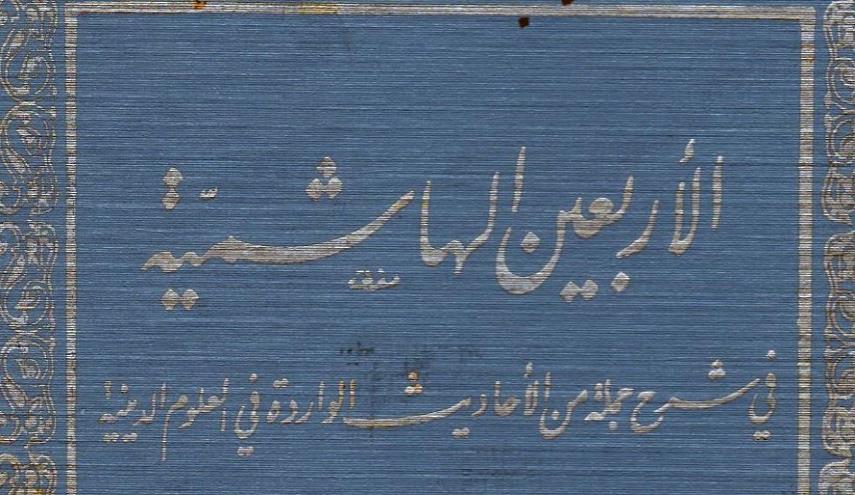 الأربعين الهاشميّة
في شرح جملة من الأحاديث الواردة في العلوم الدينية